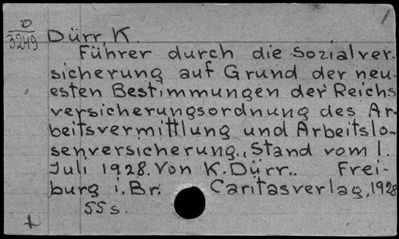 0
3249
Dürr, K.
Führer durch die Sozialver-
sicherung auf Grund der neu-
esten Bestimmungen der Reichs
versicherungsordnung des Ar-
beitsvermittlung und Arbeitslo-
senversicherung., Stand vom 1.
Juli 1928. Von K. Dürr.. Frei-
burg i. Br. Caritasverlag, 1928
55 s.